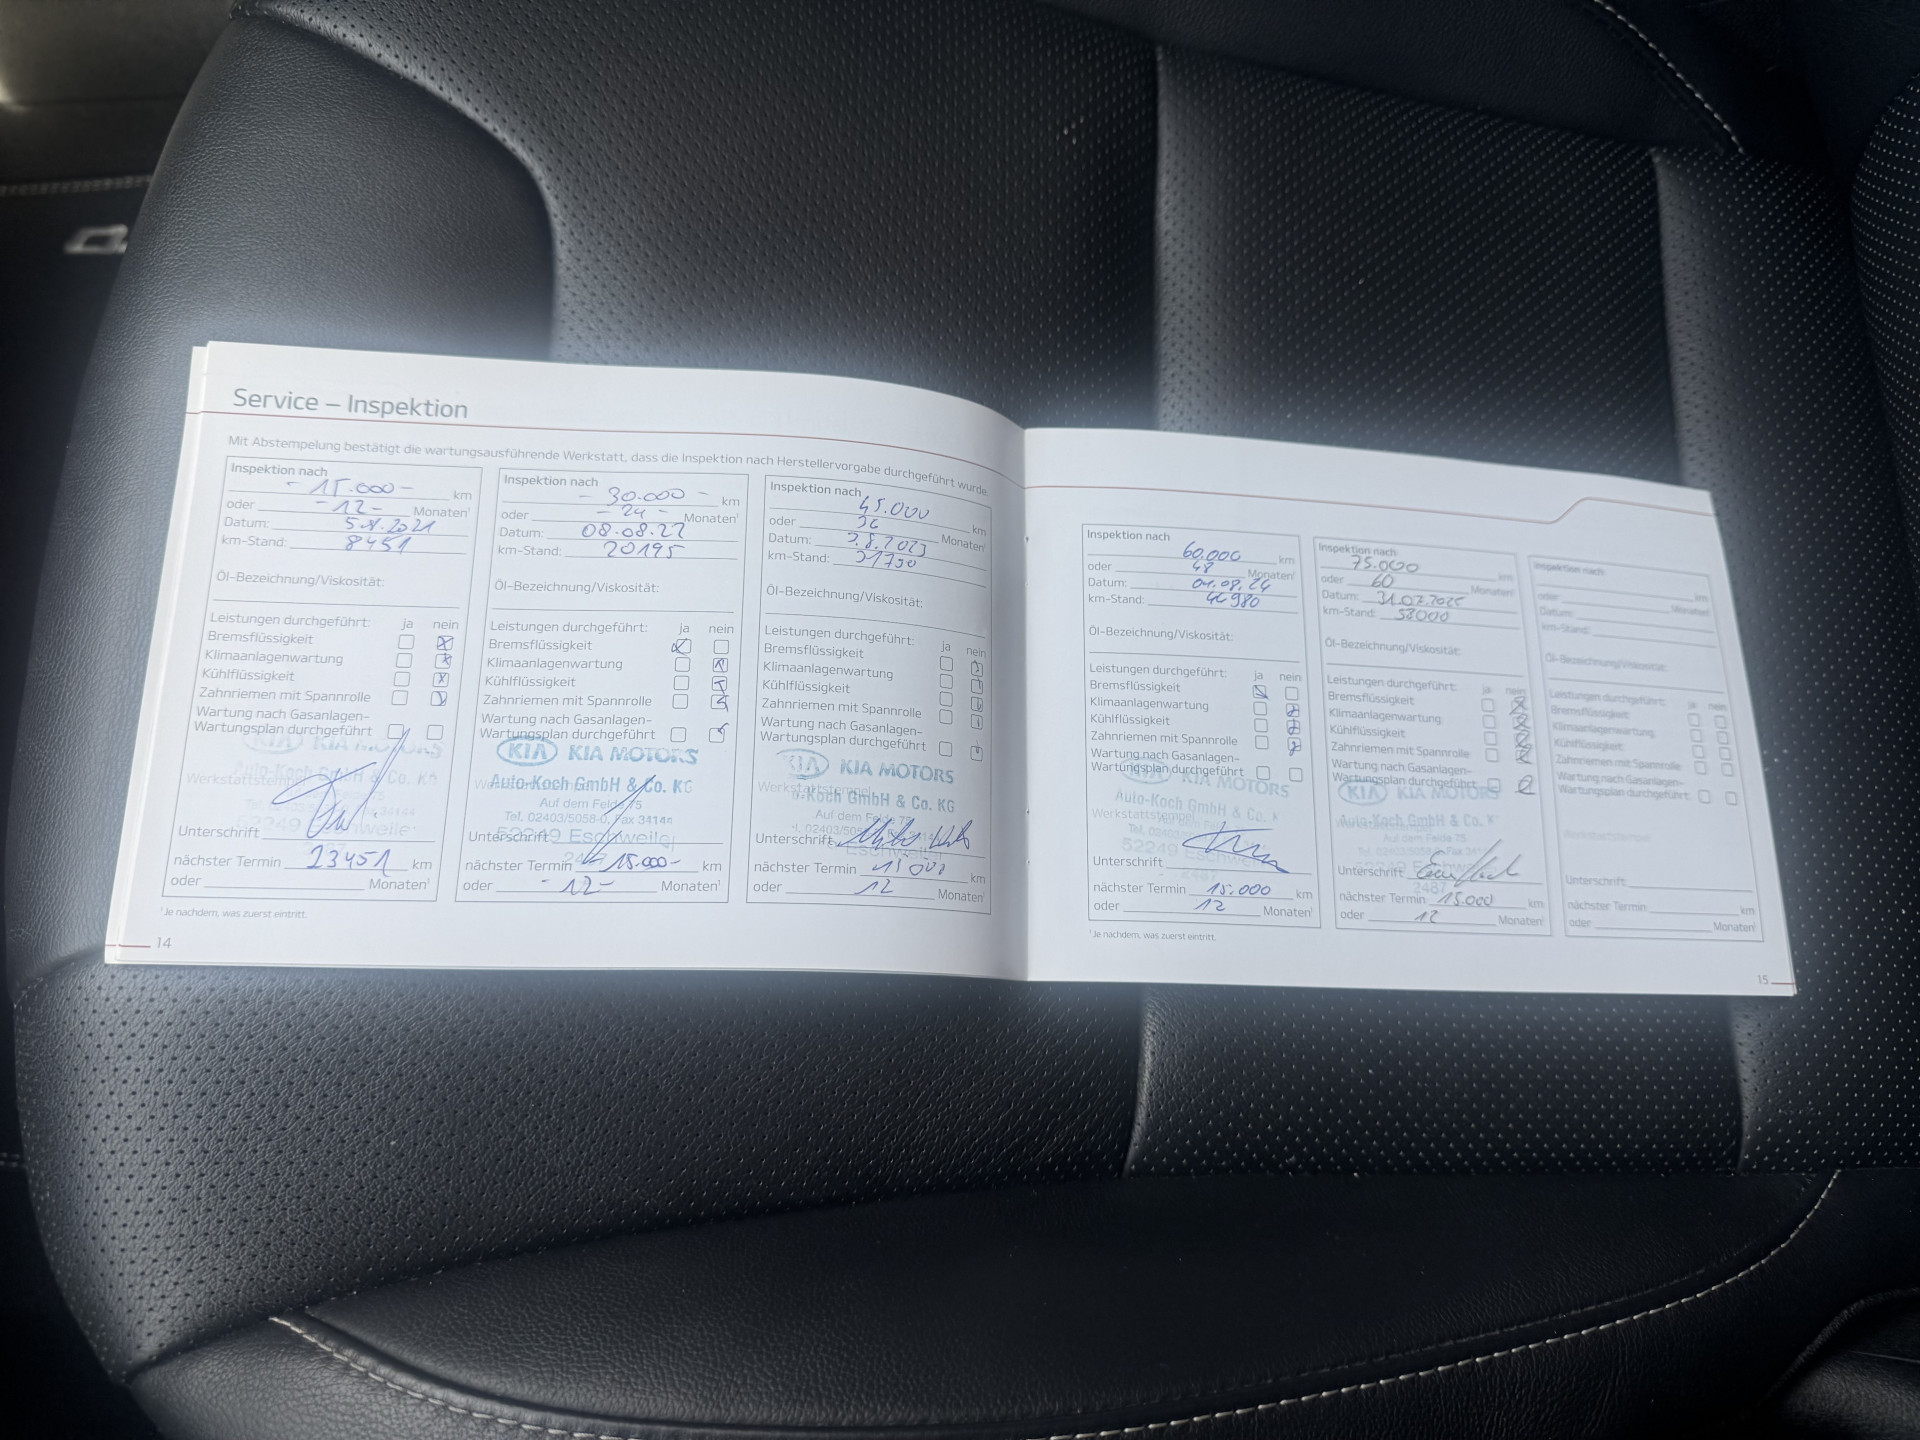 Service – Inspektion
Mit Abstempelung bestätigt die wartungsausführende Werkstatt, dass die Inspektion nach Herstellervorgabe durchgeführt wurde.
Inspektion nach
- 15.000 - km
oder - 12 - Monaten¹
Datum: 5.8.2021
km-Stand: 8451
Öl-Bezeichnung/Viskosität:
Leistungen durchgeführt: ja nein
Bremsflüssigkeit
Klimaanlagenwartung
Kühlflüssigkeit
Zahnriemen mit Spannrolle
Wartung nach Gasanlagen-
Wartungsplan durchgeführt
KIA MOTORS
Auto-Koch GmbH & Co. KG
Werkstattstempel
52249 Eschweiler
Unterschrift
nächster Termin 23451 km
oder Monaten¹
¹Je nachdem, was zuerst eintritt.
14
Inspektion nach
- 30.000 - km
oder - 24 - Monaten¹
Datum: 08.08.22
km-Stand: 20195
Öl-Bezeichnung/Viskosität:
Leistungen durchgeführt: ja nein
Bremsflüssigkeit
Klimaanlagenwartung
Kühlflüssigkeit
Zahnriemen mit Spannrolle
Wartung nach Gasanlagen-
Wartungsplan durchgeführt
KIA KIA MOTORS
Auto-Koch GmbH & Co. KG
Auf dem Felde 75
Tel. 02403/5058-0, Fax 34144
52249 Eschweiler
Unterschrift
2487
nächster Termin 15.000- km
oder - 12 - Monaten¹
Inspektion nach
45.000 km
oder 36 Monaten¹
Datum: 2.8.2023
km-Stand: 31750
Öl-Bezeichnung/Viskosität:
Leistungen durchgeführt: ja nein
Bremsflüssigkeit
Klimaanlagenwartung
Kühlflüssigkeit
Zahnriemen mit Spannrolle
Wartung nach Gasanlagen-
Wartungsplan durchgeführt
KIA KIA MOTORS
Werkstattstempel
-Koch GmbH & Co. KG
Auf dem Felde 75
Unterschrift
Eschweiler
nächster Termin 15000 km
oder 12 Monaten¹
Inspektion nach
60.000 km
oder 48 Monaten¹
Datum: 01.08.24
km-Stand: 44980
Öl-Bezeichnung/Viskosität:
Leistungen durchgeführt: ja nein
Bremsflüssigkeit
Klimaanlagenwartung
Kühlflüssigkeit
Zahnriemen mit Spannrolle
Wartung nach Gasanlagen-
Wartungsplan durchgeführt
KIA MOTORS
Auto-Koch GmbH & Co. K
Werkstattstempel
52249 Eschweiler
Unterschrift
2487
nächster Termin 15.000 km
oder 12 Monaten¹
¹Je nachdem, was zuerst eintritt.
Inspektion nach
75.000 km
oder 60 Monaten¹
Datum: 31.07.2025
km-Stand: 58000
Öl-Bezeichnung/Viskosität:
Leistungen durchgeführt: ja nein
Bremsflüssigkeit
Klimaanlagenwartung
Kühlflüssigkeit
Zahnriemen mit Spannrolle
Wartung nach Gasanlagen-
Wartungsplan durchgeführt
KIA KIA MOTORS
Auto-Koch GmbH & Co. K
Auf dem Felde 75
52249 Eschweiler
Unterschrift
2487
nächster Termin 15.000 km
oder 12 Monaten¹
Inspektion nach
km
oder Monaten¹
Datum:
km-Stand:
Öl-Bezeichnung/Viskosität:
Leistungen durchgeführt: ja nein
Bremsflüssigkeit
Klimaanlagenwartung
Kühlflüssigkeit
Zahnriemen mit Spannrolle
Wartung nach Gasanlagen-
Wartungsplan durchgeführt
Unterschrift
nächster Termin km
oder Monaten¹
15